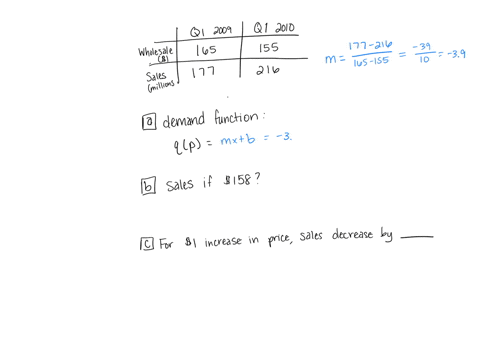 Q1 2009 Q1 2010
Wholesale ($) 165 155
Sales (millions) 177 216
m = 177-216 / 165-155 = -39 / 10 = -3.9
a demand function:
q(p) = mx+b = -3.
b Sales if $158?
c For $1 increase in price, sales decrease by ____